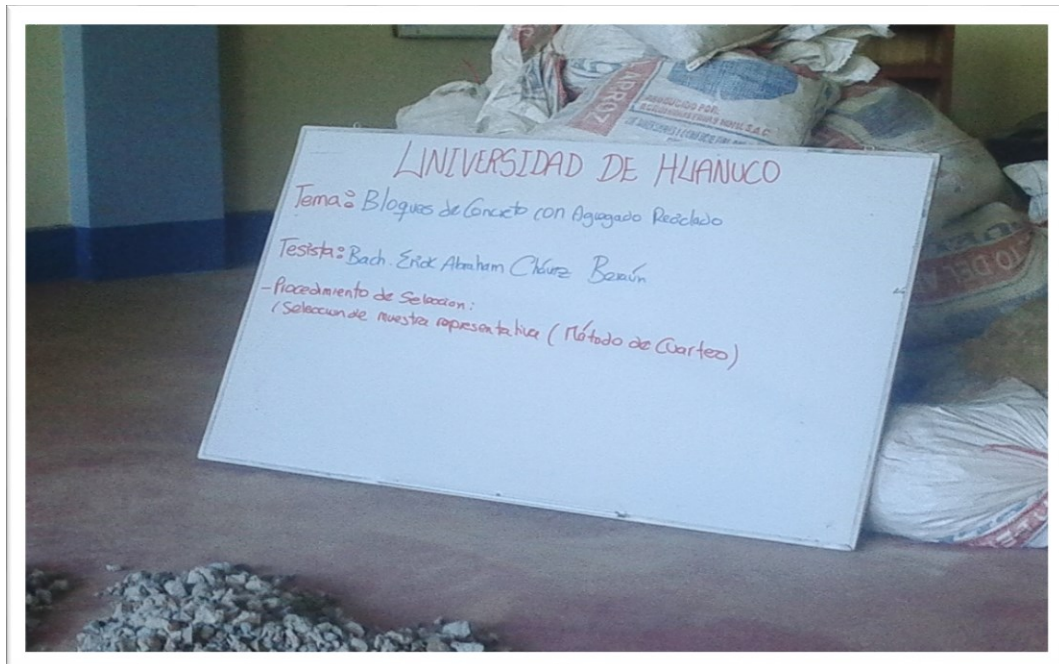 APROZ
PRODUCIDO POR:
UNIVERSIDAD DE HUÁNUCO
Tema: Bloques de Concreto con Agregado Reciclado
Tesista: Bach. Erick Abraham Chávez Beraún
- Procedimiento de Seleccion:
(Seleccion de muestra representativa (Método de Cuarteo)